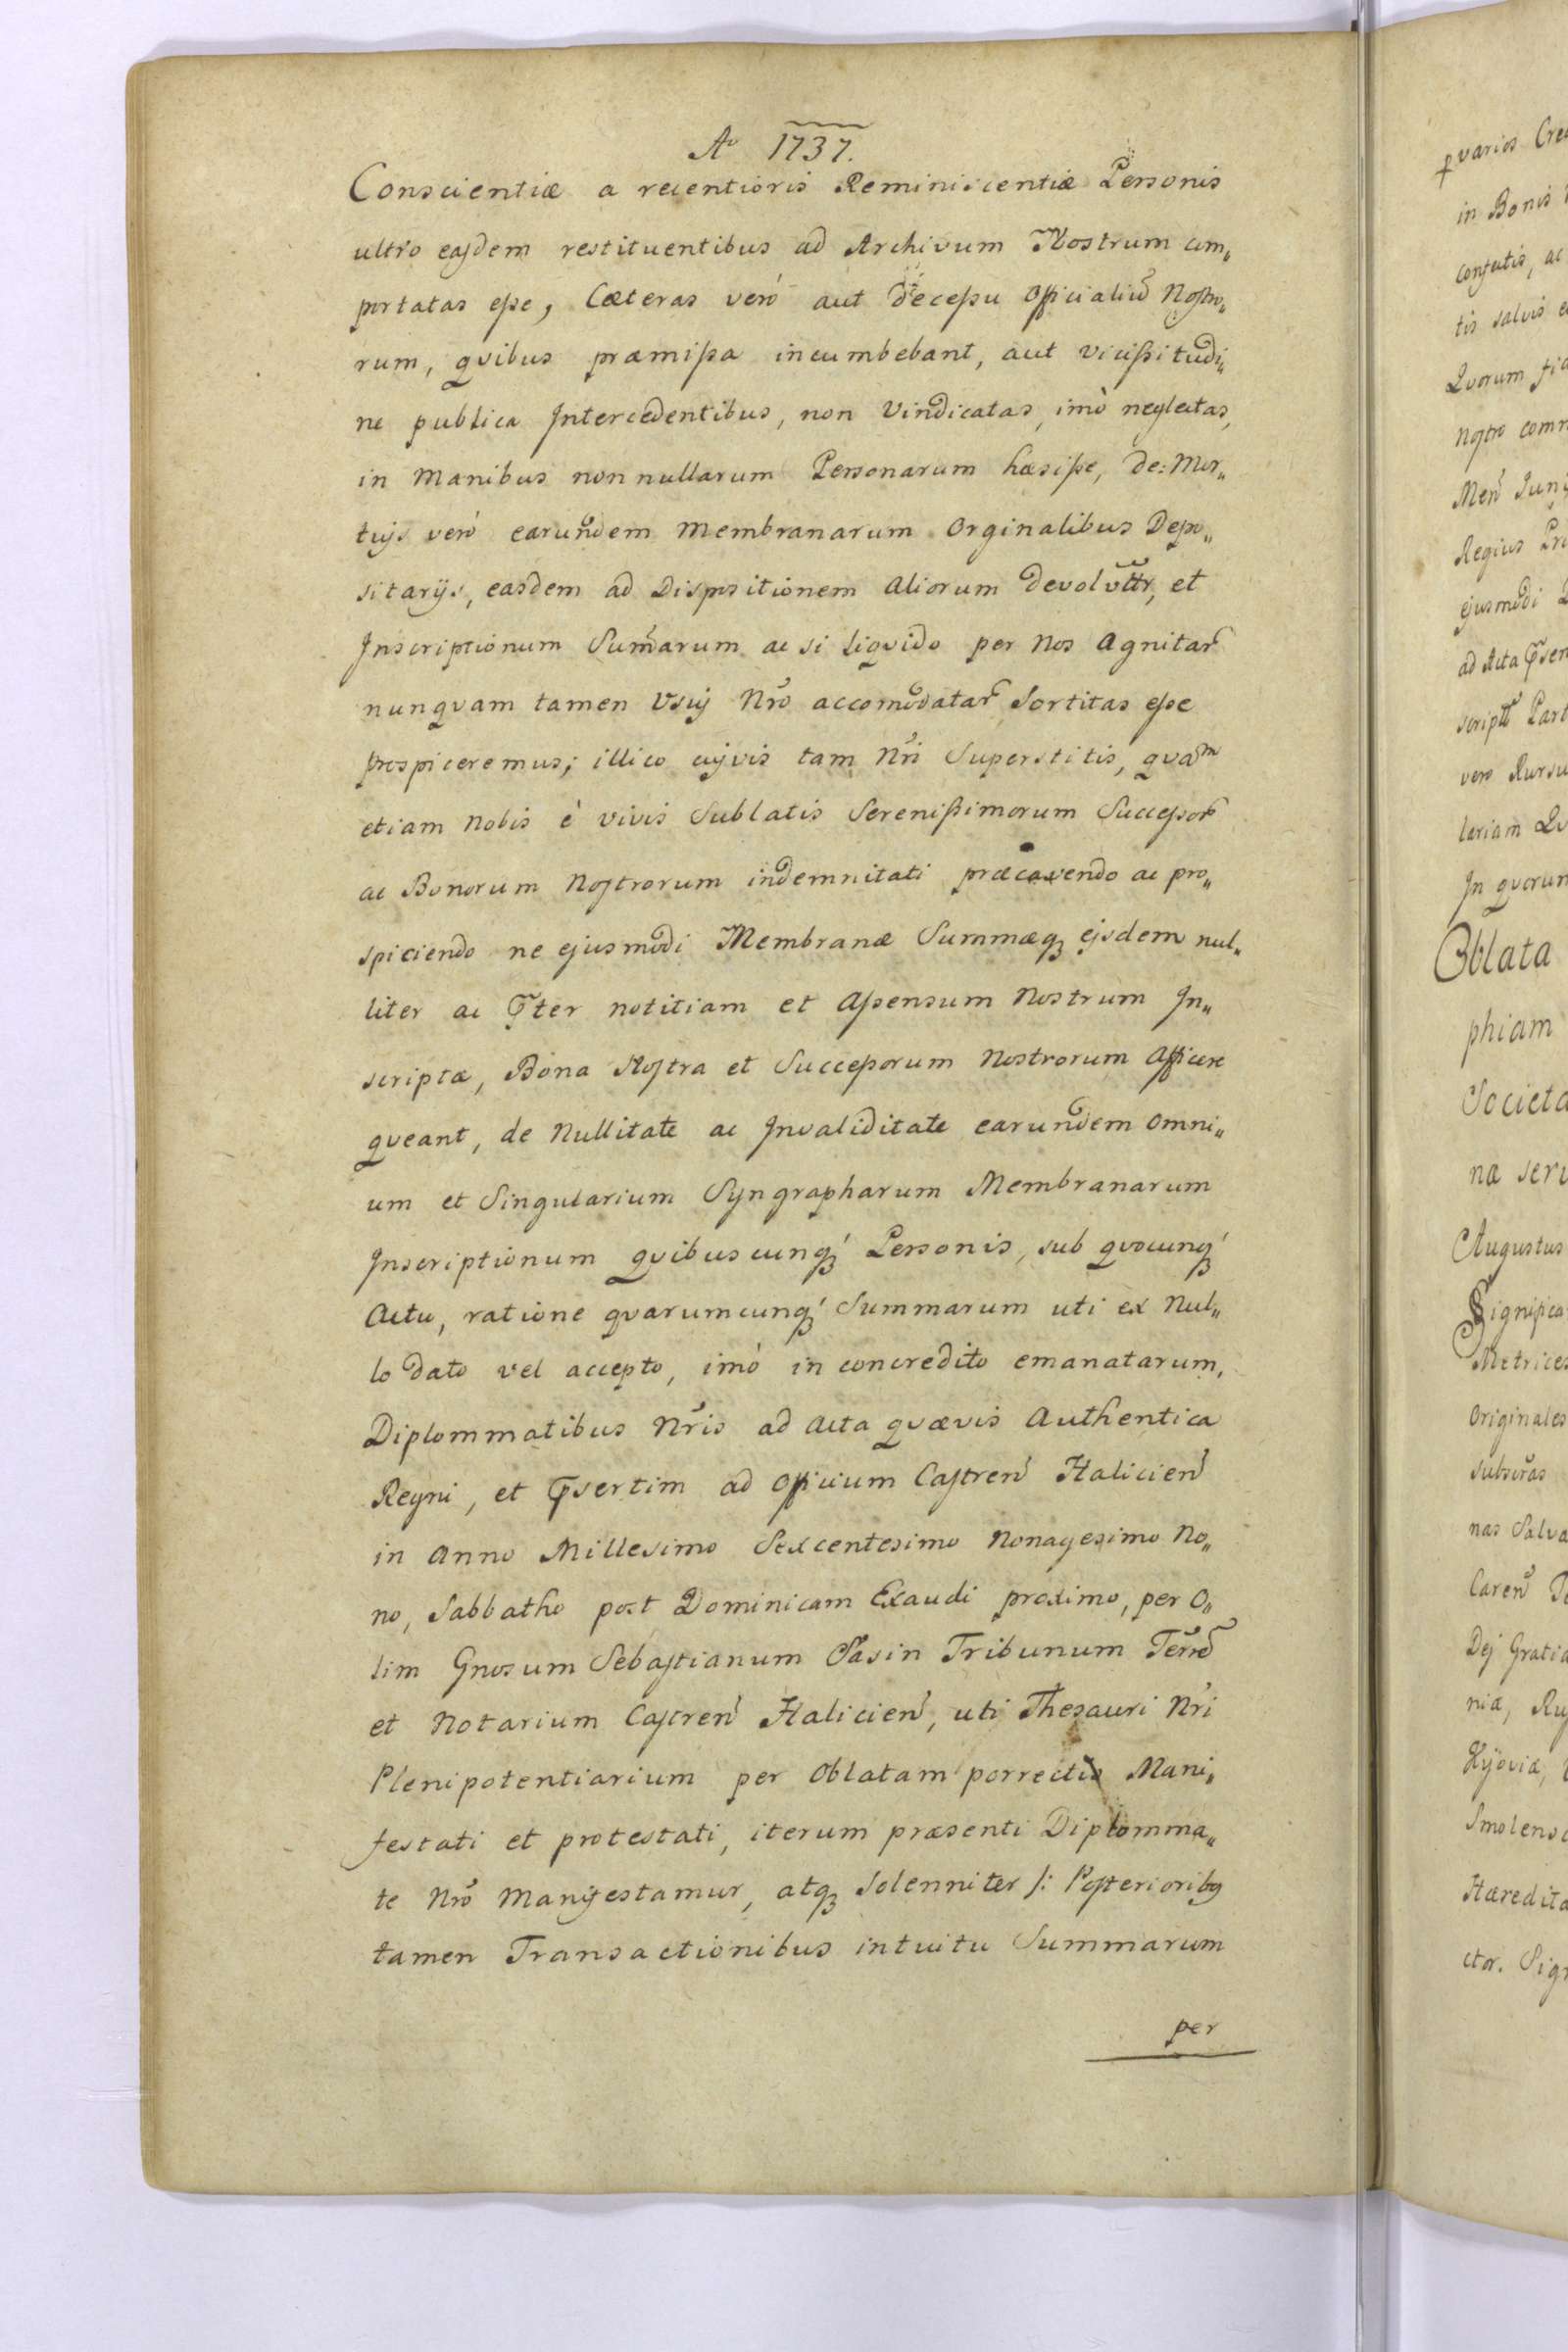 Aͦ 1737.
Conscientiæ a recentioris Reminiscentiæ Personis
ultrò easdem restituentibus ad Archivum Nostrum com„
portatas esse, Cæteras verò aut decessu Officialiũ Nostro„
rum, qvibus præmissa incumbebant, aut vicissitudi„
ne publica Intercedentibus, non Vindicatas, imò neglectas,
in Manibus non nullarum Personarum hæsisse, de: Mor„
tujs verò earundem Membranarum Orginalibus Depo„
sitarijs, easdem ad Dispositionem Aliorum devolvttr, et
Inscriptionum Sum̃arum ac si liqvido per Nos Agnitar̃
nunqvam tamen Usuj Nr̃o accom̃odatar̃ Sortitas esse
prospiceremus; illico cujvis tam Nr̃i Superstitis, qvam
etiam Nobis è vivis Sublatis Serenissimorum Successor̃
ac Bonorum Nostrorum indemnitati præcavendo ac pro„
spiciendo ne ejusmodi Membranæ Summæq; ejsdem nul„
liter ac p̃ter notitiam et Assensum Nostrum In„
scriptæ, Bona Nostra et Successorum Nostrorum Afficere
qveant, de Nullitate ac Invaliditate earundem Omni„
um et Singularium Syngrapharum Membranarum
Inscriptionum qvibuscunq; Personis, sub qvocunq;
Actu, ratione qvarumcunq; Summarum uti ex Nul„
lo dato vel accepto, imò in concredito emanatarum,
Diplommatibus Nr̃is ad Acta qvævis Authentica
Regni, et p̃sertim ad Officium Castren̄ Halicien̄
in Anno Millesimo Sexcentesimo Nonagesimo No„
no, Sabbatho post Dominicam Exaudi proximo, per O„
lim Gnosum Sebastianum Sasin Tribunum Terrẽ
et Notarium Castren̄ Halicien̄, uti Thesauri Nr̃i
Plenipotentiarium per Oblatam porrectis Mani„
festati et protestati, iterum præsenti Diplomma„
te Nr̃o Manifestamur, atq; Solenniter /: Posterioribq
tamen Transactionibus intuitu Summarum
per
varios
in Bonis
confectis, ac
tis salvis
Qvorum
Nostro
Regius
ejusmodi
ad Acta
vero
In qvorum
Oblata
phiam
Augustus
Originales
Dej Gratia
niæ,
Kijoviæ,